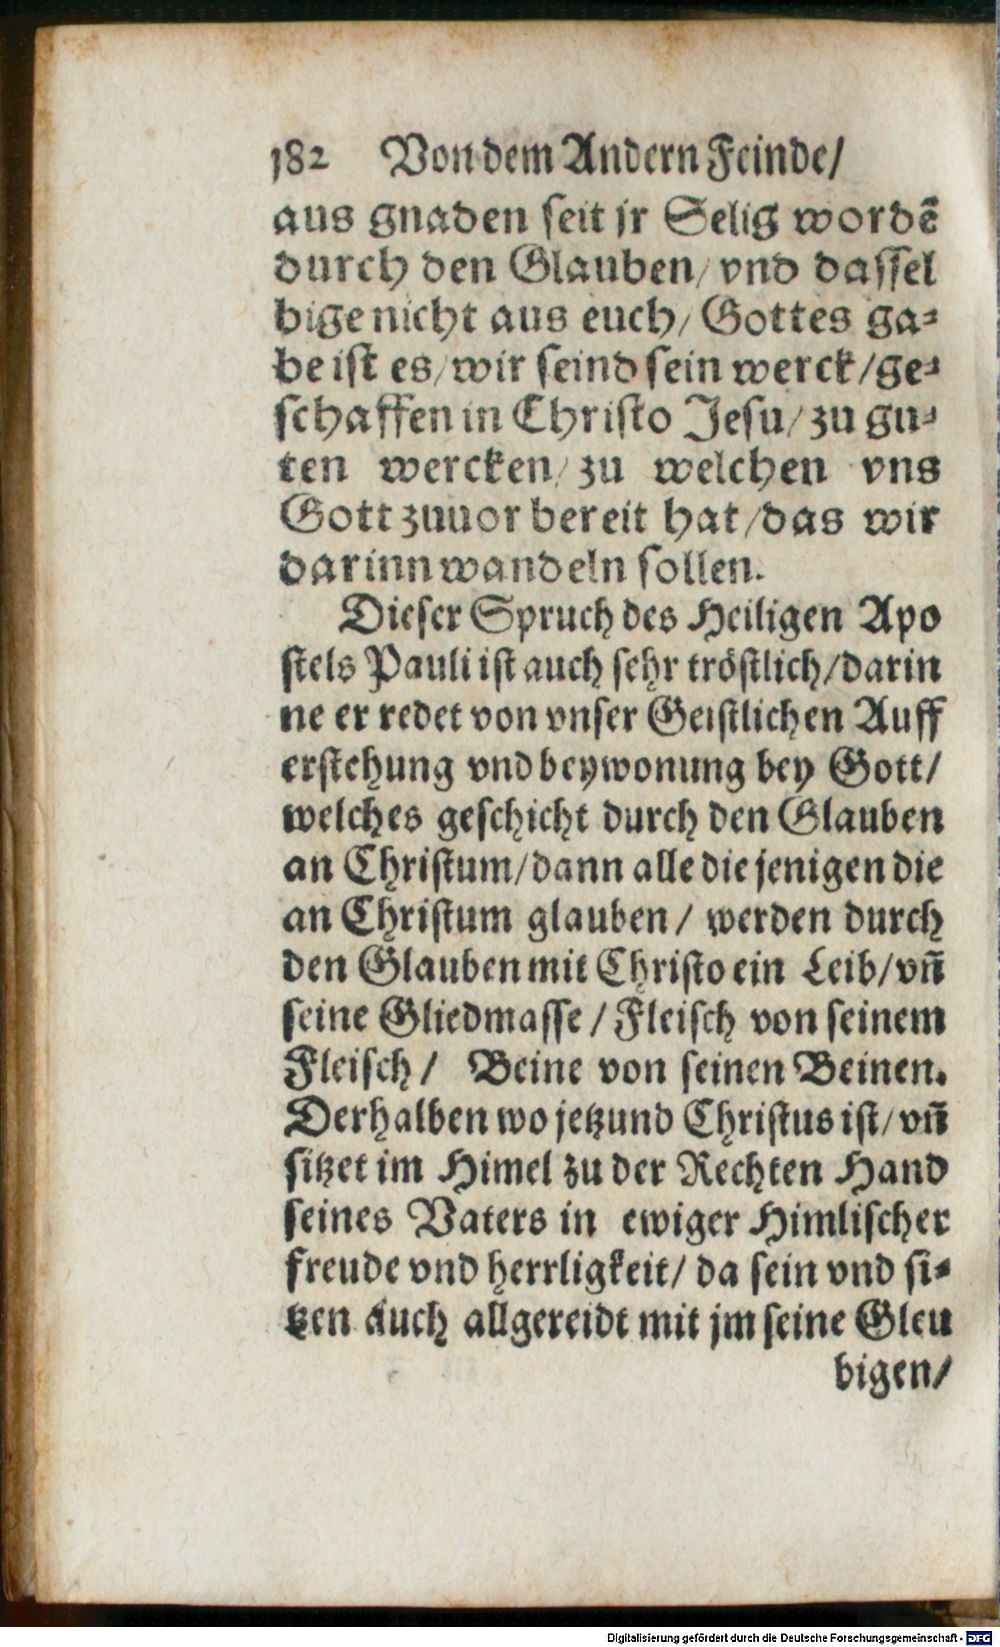 182 Von dem Andern Feinde/
aus gnaden seit jr Selig wordẽ
durch den Glauben/ vnd dassel
bige nicht aus euch/ Gottes ga-
be ist es/ wir seind sein werck/ ge-
schaffen in Christo Jesu/ zu gu-
ten wercken/ zu welchen vns
Gott zuuor bereit hat/ das wir
darinn wandeln sollen.
Dieser Spruch des Heiligen Apo
stels Pauli ist auch sehr tröstlich/ darin
ne er redet von vnser Geistlichen Auff
erstehung vnd beywonung bey Gott/
welches geschicht durch den Glauben
an Christum/ dann alle die jenigen die
an Christum glauben/ werden durch
den Glauben mit Christo ein Leib/ vñ
seine Gliedmasse/ Fleisch von seinem
Fleisch/ Beine von seinen Beinen.
Derhalben wo jetzund Christus ist/ vñ
sitzet im Himel zu der Rechten Hand
seines Vaters in ewiger Himlischer
freude vnd herrligkeit/ da sein vnd si-
tzen auch allgereidt mit jm seine Gleu
bigen/
Digitalisierung gefördert durch die Deutsche Forschungsgemeinschaft - DFG